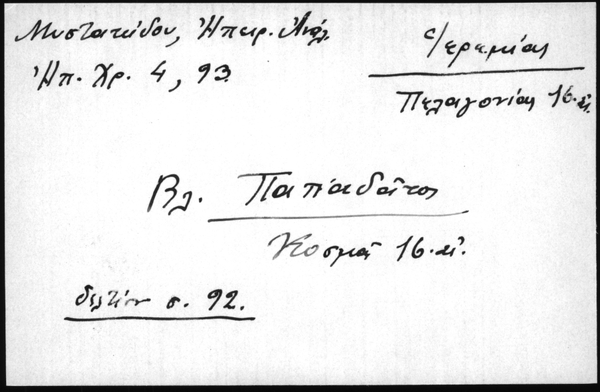 Μυστακίδου, Ἠπειρ. Ἀνάλ.
Ἠπ. Χρ. 4, 93.
Ἱερεμίας
Πελαγονίας 16. αἰ.
Βλ. Παπαδᾶτος
Κοσμᾶ 16. αἰ.
δελτίον σ. 92.